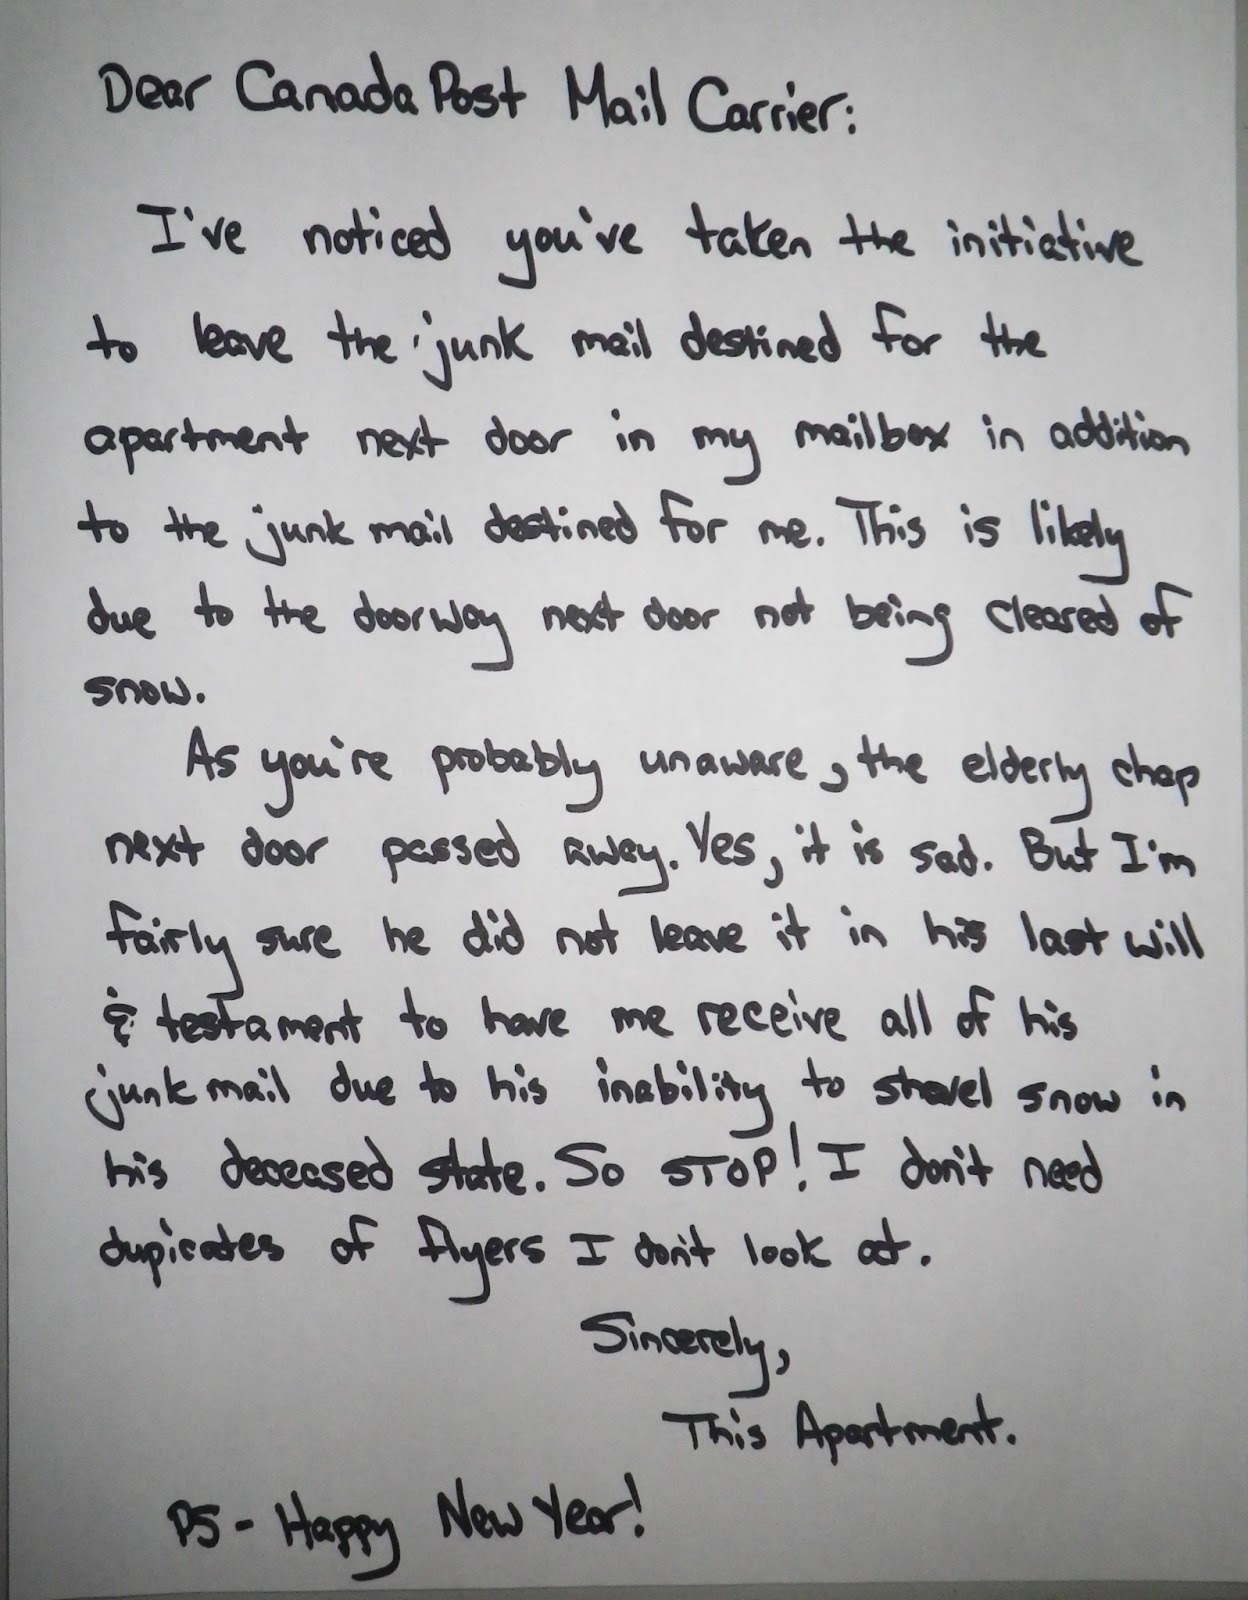 Dear Canada Post Mail Carrier:
I've noticed you've taken the initiative
to leave the junk mail destined for the
apartment next door in my mailbox in addition
to the junk mail destined for me. This is likely
due to the doorway next door not being cleared of
snow.
As you're probably unaware, the elderly chap
next door passed away. Yes, it is sad. But I'm
fairly sure he did not leave it in his last will
& testament to have me receive all of his
junk mail due to his inability to shovel snow in
his deceased state. So STOP! I don't need
dupicates of flyers I don't look at.
Sincerely,
This Apartment.
PS - Happy New Year!